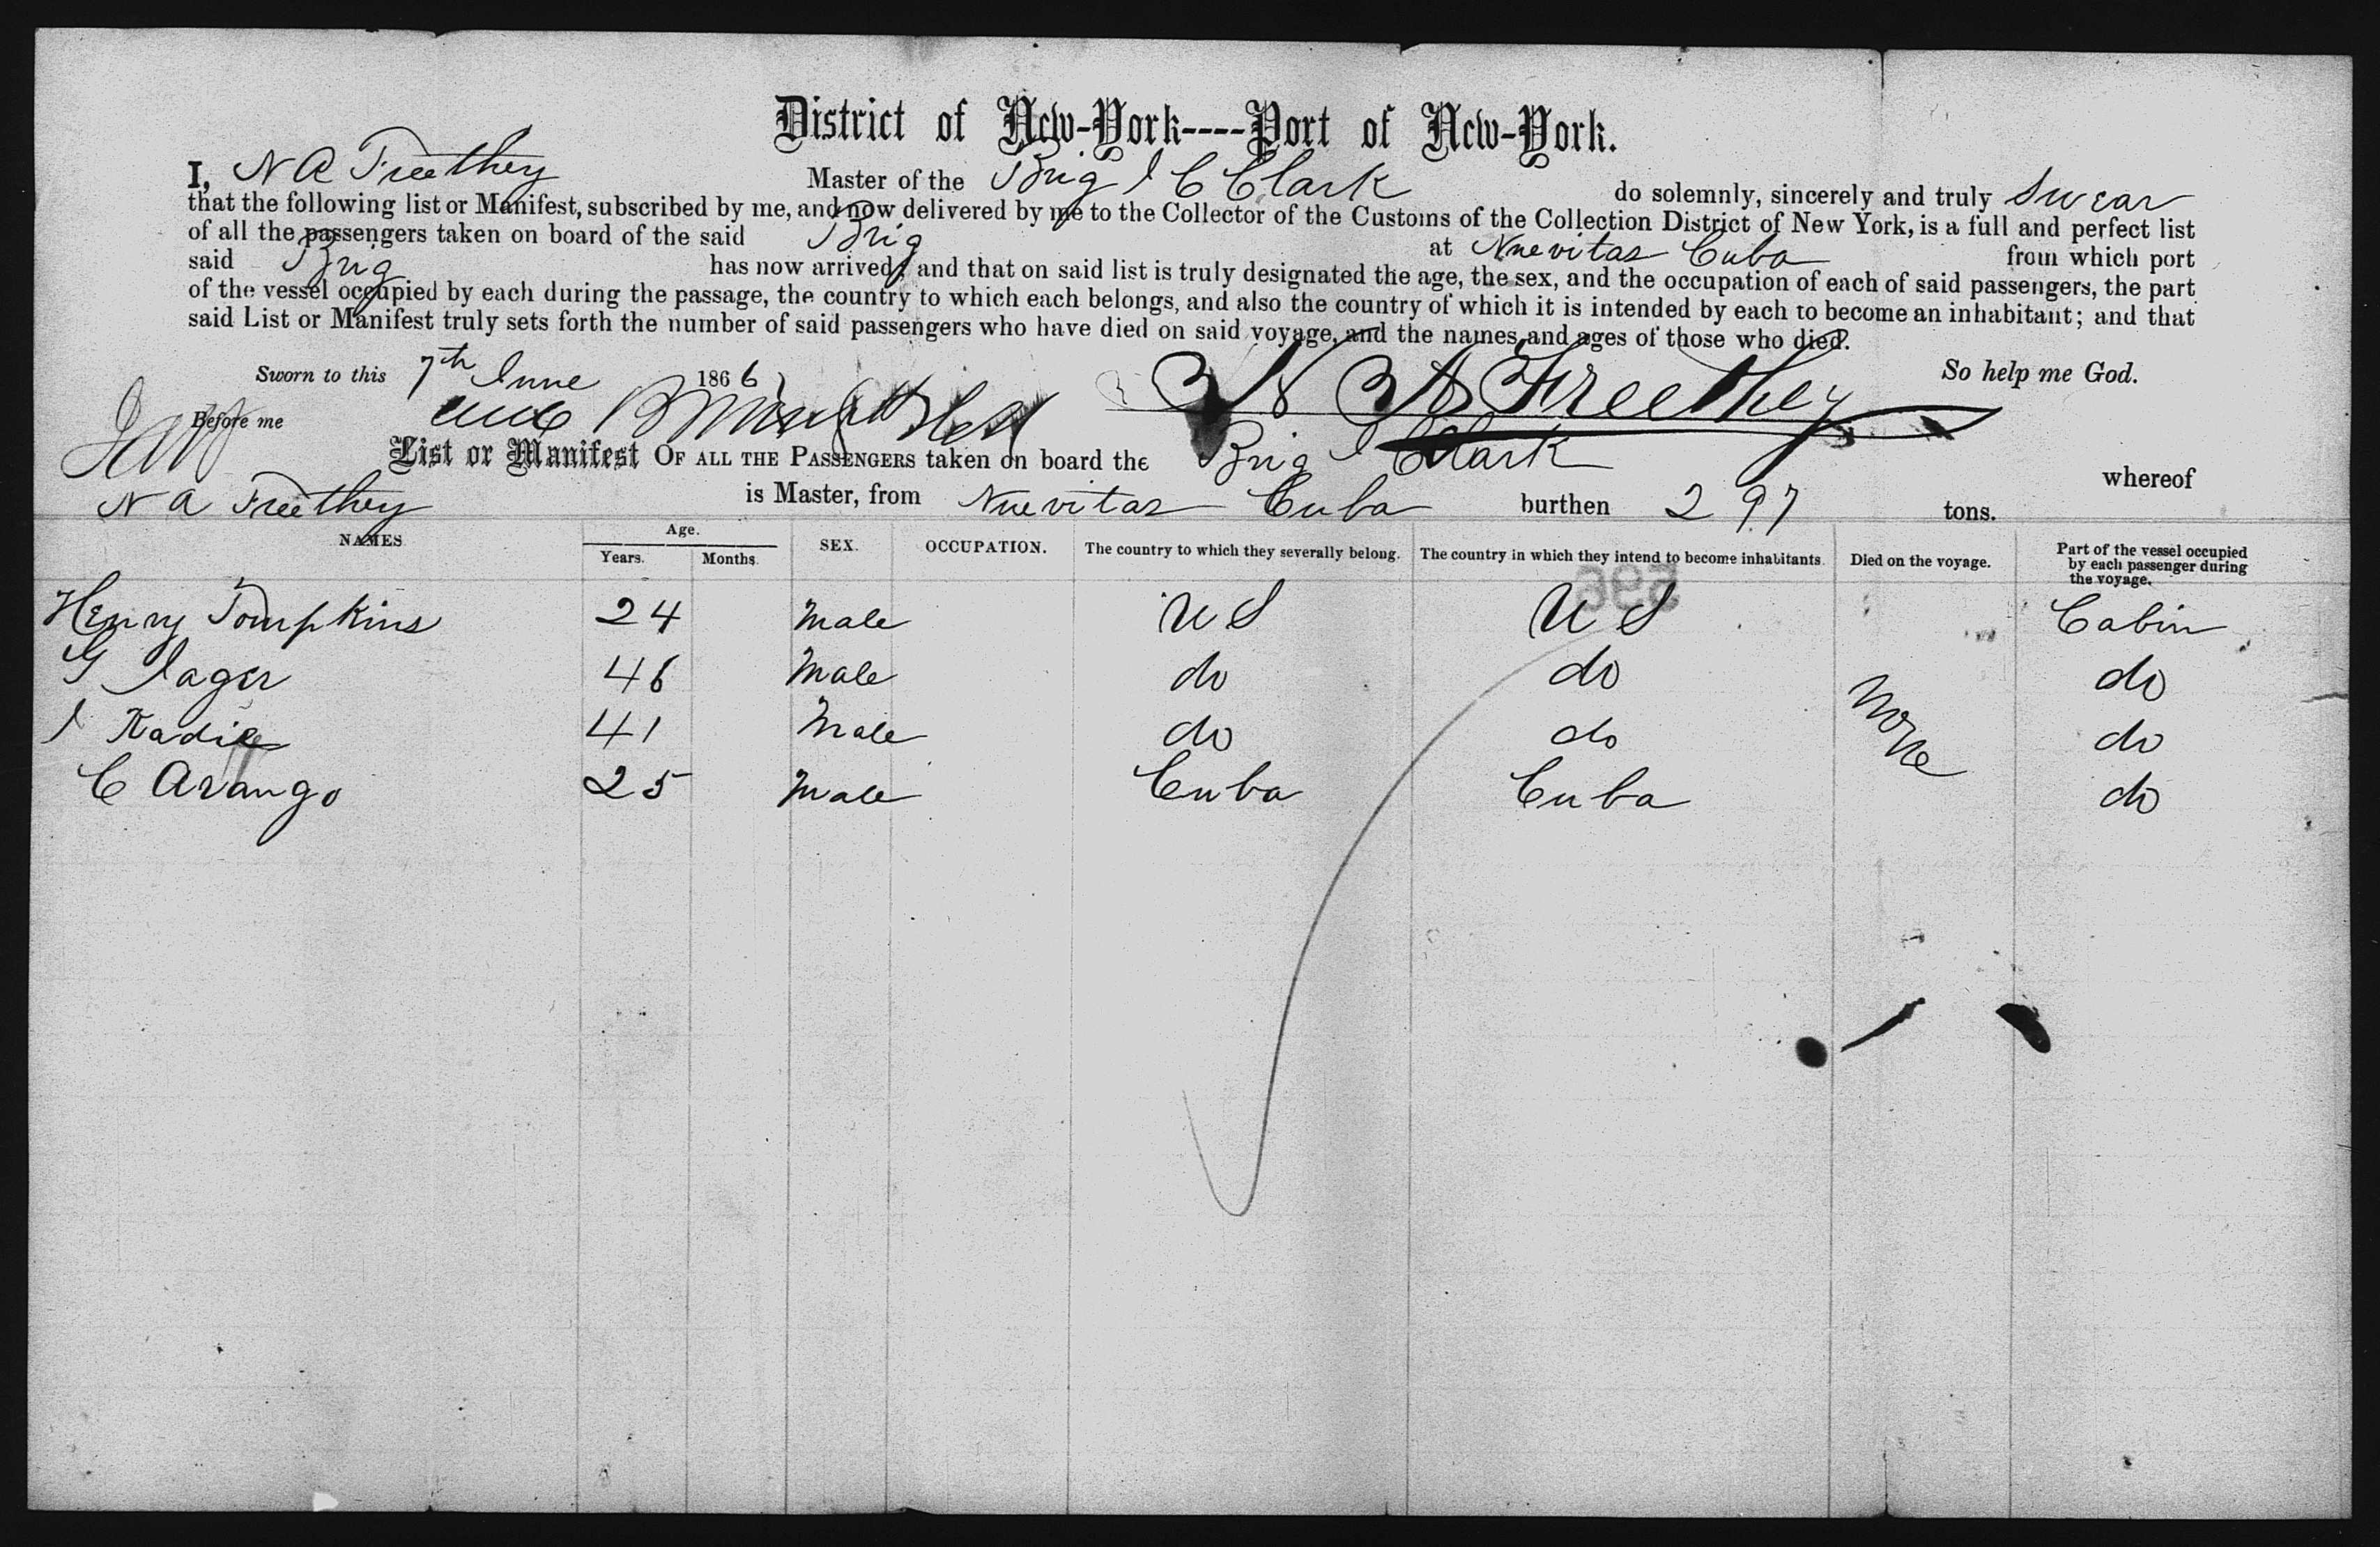 District of New-York----Port of New-York.
I, N A Freethey Master of the Brig J C Clark do solemnly, sincerely and truly swear
that the following list or Manifest, subscribed by me, and now delivered by me to the Collector of the Customs of the Collection District of New York, is a full and perfect list
of all the passengers taken on board of the said Brig at Nuevitas Cuba from which port
said Brig has now arrived; and that on said list is truly designated the age, the sex, and the occupation of each of said passengers, the part
of the vessel occupied by each during the passage, the country to which each belongs, and also the country of which it is intended by each to become an inhabitant; and that
said List or Manifest truly sets forth the number of said passengers who have died on said voyage, and the names and ages of those who died.
Sworn to this 7th June 1866 So help me God.
N A Freethey
Before me
List or Manifest OF ALL THE PASSENGERS taken on board the Brig J C Clark whereof
N A Freethey is Master, from Nuevitas Cuba burthen 297 tons.
NAMES Age. Years. Months. SEX. OCCUPATION. The country to which they severally belong. The country in which they intend to become inhabitants. Died on the voyage. Part of the vessel occupied by each passenger during the voyage.
595
Henry Tompkins 24 Male U S U S Cabin
G Jager 46 Male do do do
J Kadie 41 Male do do None do
C Arango 25 Male Cuba Cuba do